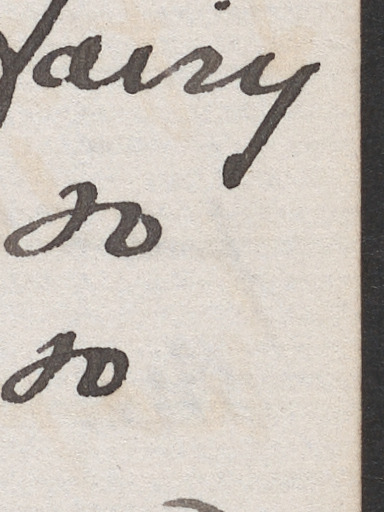 Fairy
so
so